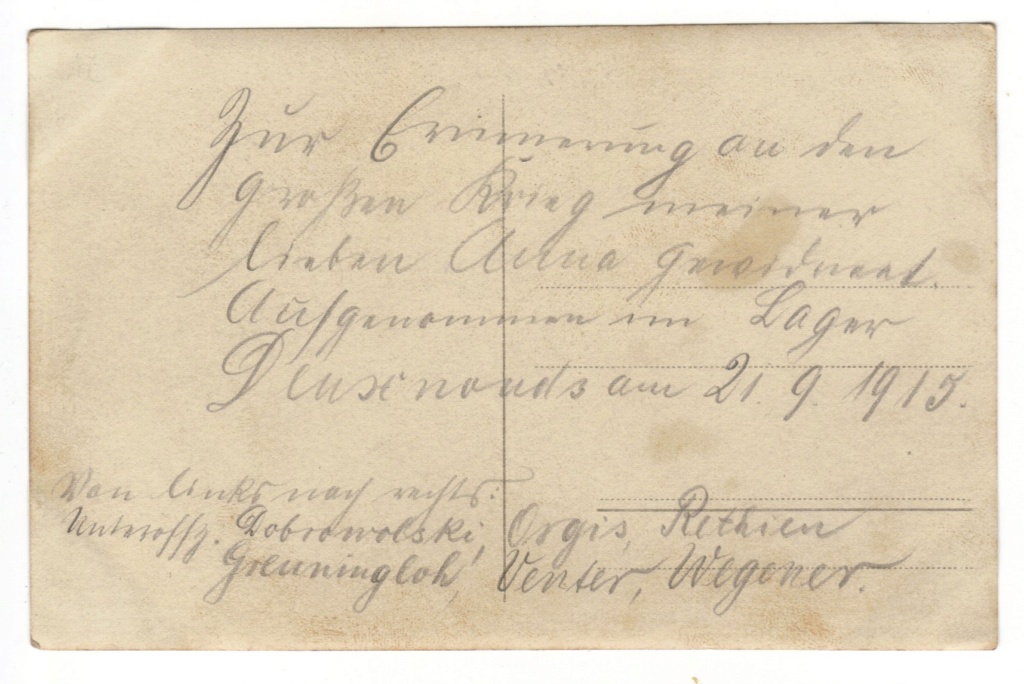 Zur Erinnerung an den
großen Krieg meiner
lieben Anna gewidmet.
Aufgenommen im Lager
Deuxnouds am 21. 9. 1915.
Von links nach rechts:
Unteroffz. Dobrowolski, Orgis, Rethien
Greuningloh, Venter, Wegener.